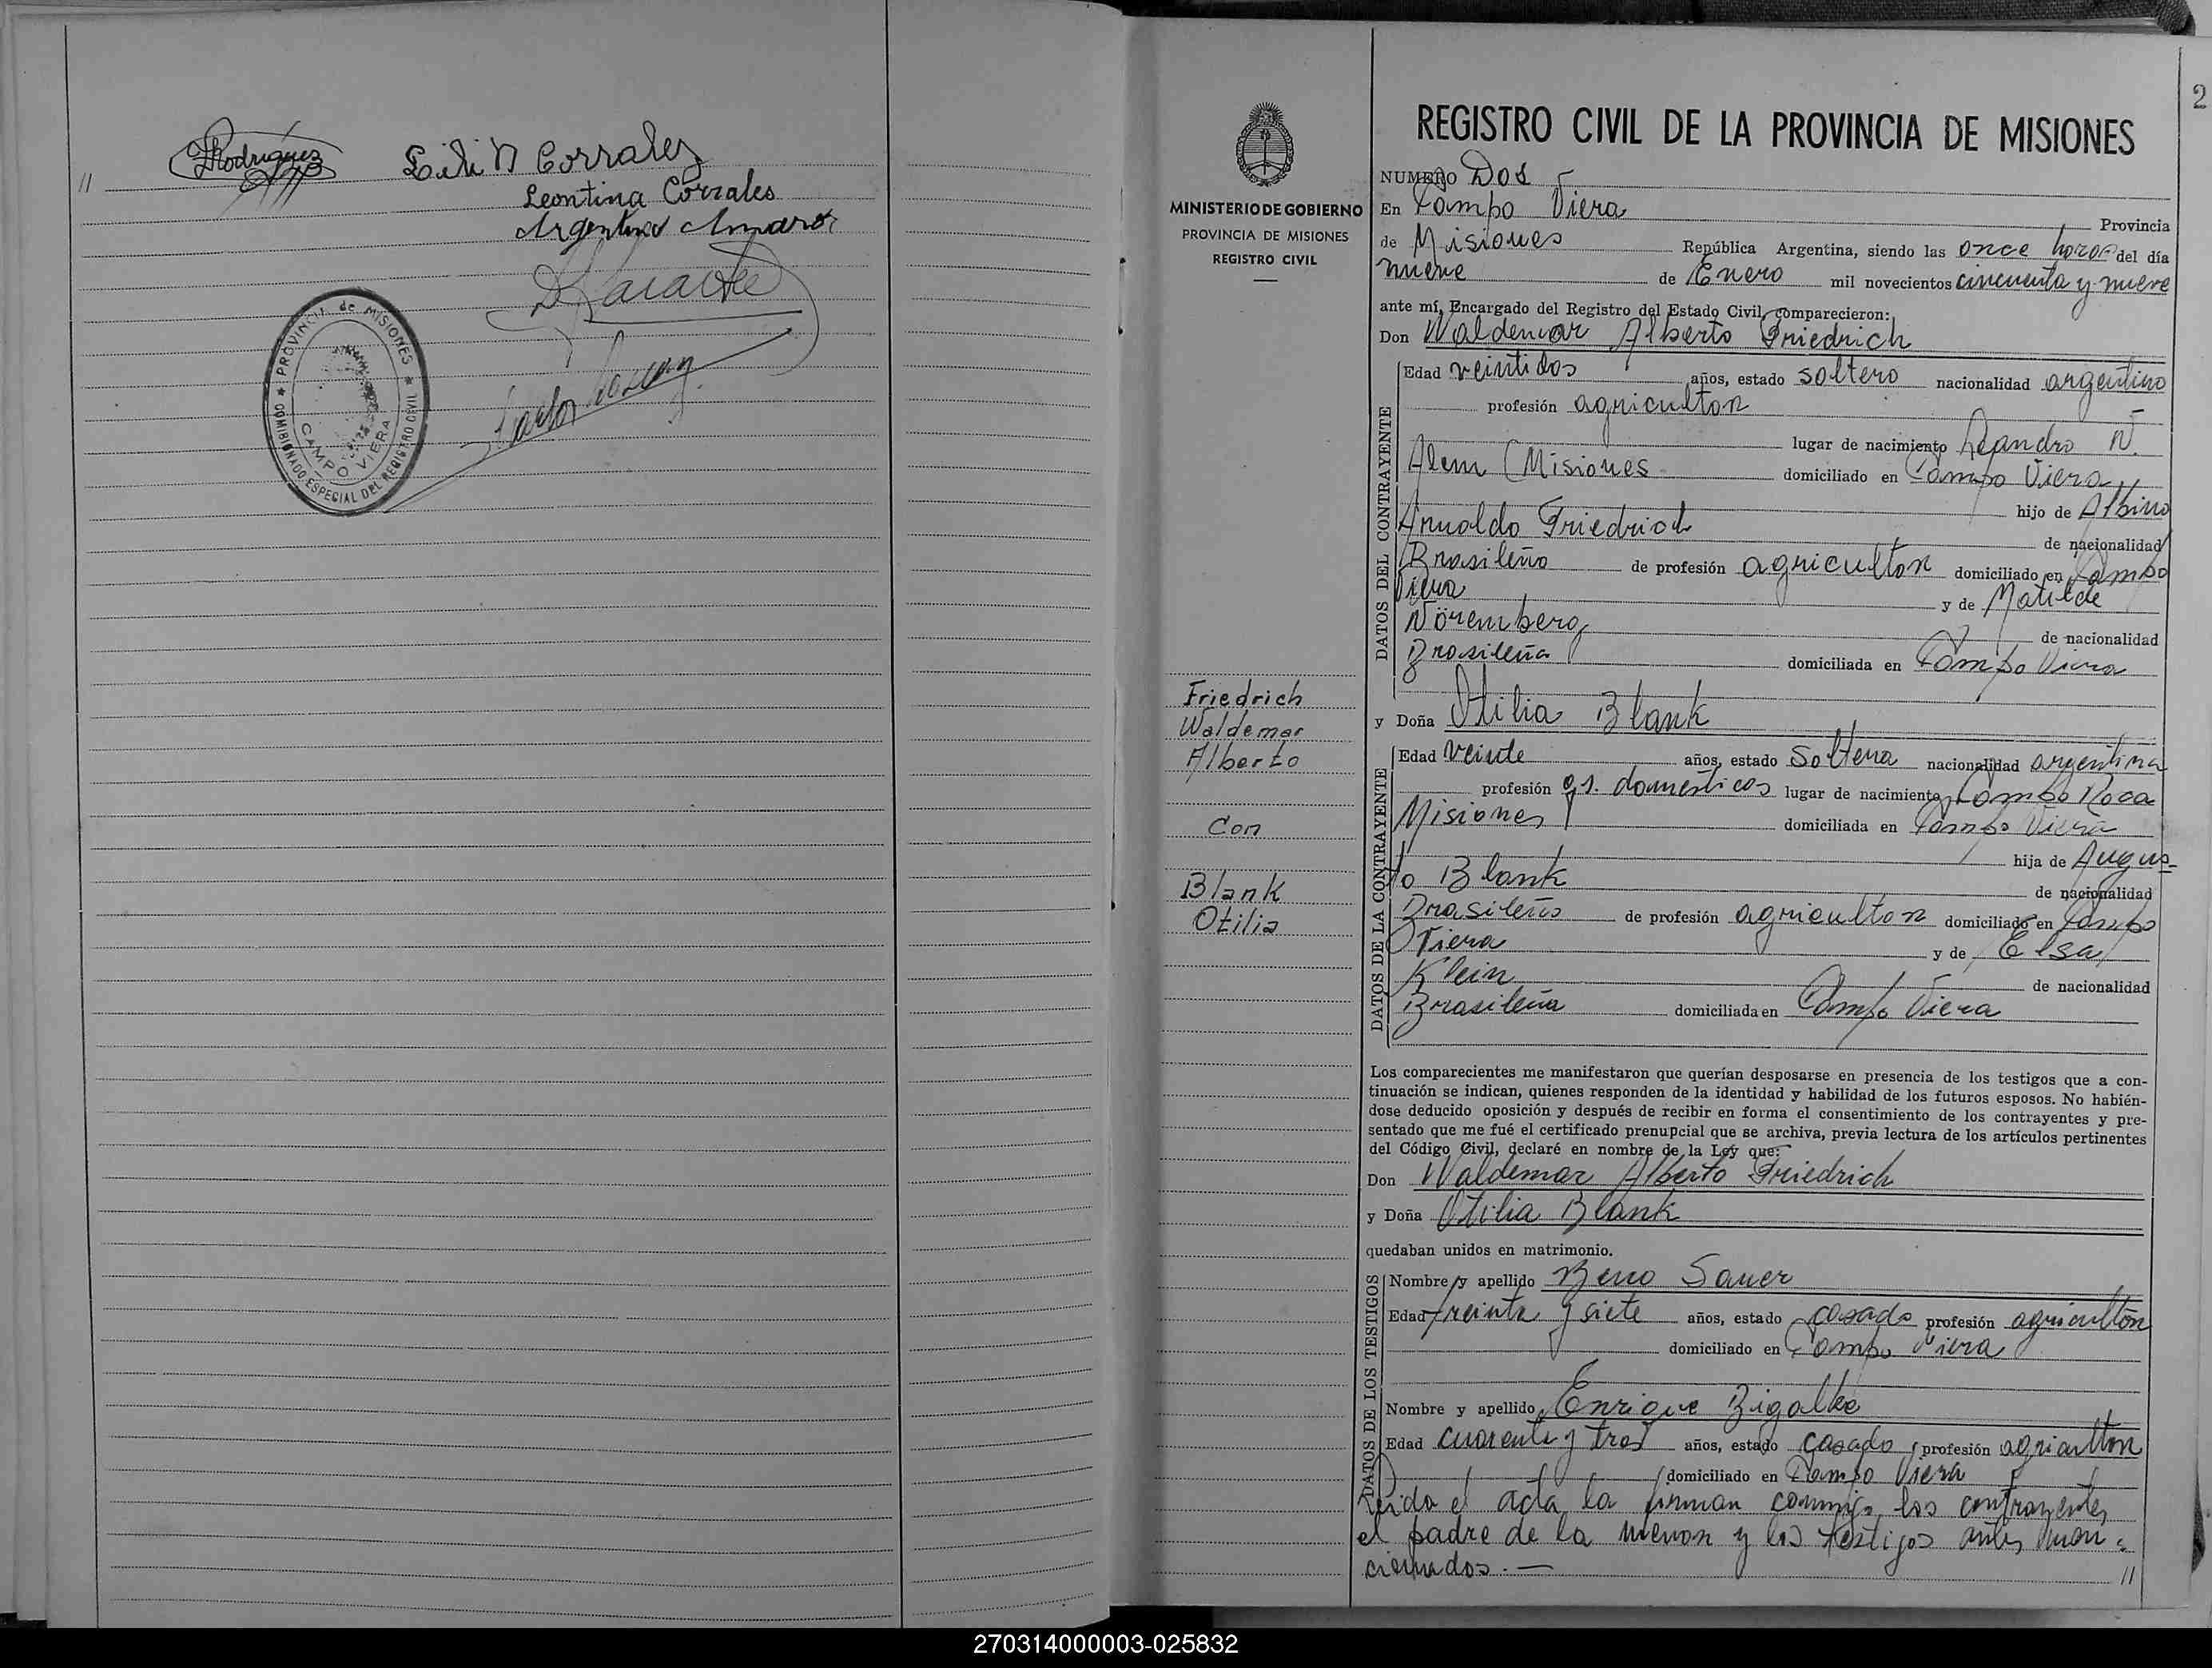 Rodríguez
Lili N Corrales
//
Leontina Corrales
Argentina Amaro
PROVINCIA de MISIONES
COMISIONADO ESPECIAL DEL REGISTRO CIVIL
CAMPO VIERA
2
MINISTERIO DE GOBIERNO
PROVINCIA DE MISIONES
REGISTRO CIVIL
Friedrich
Waldemar
Alberto
Con
Blank
Otilia
REGISTRO CIVIL DE LA PROVINCIA DE MISIONES
NUMERO Dos
En Campo Viera Provincia
de Misiones República Argentina, siendo las once horas del día
nueve de Enero mil novecientos cincuenta y nueve
ante mí, Encargado del Registro del Estado Civil, comparecieron:
Don Waldemar Alberto Friedrich
DATOS DEL CONTRAYENTE
Edad veintidos años, estado soltero nacionalidad argentino
profesión agricultor
lugar de nacimiento Leandro N.
Alem (Misiones domiciliado en Campo Viera
hijo de Albino
Arnoldo Friedrich de nacionalidad
Brasileño de profesión agricultor domiciliado en Campo
Viera y de Matilde
Nöremberg de nacionalidad
Brasileña domiciliada en Campo Viera
y Doña Otilia Blank
DATOS DE LA CONTRAYENTE
Edad veinte años, estado soltera nacionalidad argentina
profesión qs. domésticos lugar de nacimiento Campo Roca
Misiones domiciliada en Campo Viera
hija de Augus-
to Blank de nacionalidad
Brasileño de profesión agricultor domiciliado en Campo
Viera y de Elsa
Klein de nacionalidad
Brasileña domiciliada en Campo Viera
Los comparecientes me manifestaron que querían desposarse en presencia de los testigos que a con-
tinuación se indican, quienes responden de la identidad y habilidad de los futuros esposos. No habién-
dose deducido oposición y después de recibir en forma el consentimiento de los contrayentes y pre-
sentado que me fué el certificado prenupcial que se archiva, previa lectura de los artículos pertinentes
del Código Civil, declaré en nombre de la Ley que:
Don Waldemar Alberto Friedrich
y Doña Otilia Blank
quedaban unidos en matrimonio.
DATOS DE LOS TESTIGOS
Nombre y apellido Beno Sauer
Edad treinta y siete años, estado casado profesión agricultor
domiciliado en Campo Viera
Nombre y apellido Enrique Zigalke
Edad cuarenta y tres años, estado casado profesión agricultor
domiciliado en Campo Viera
Leida el acta la firman conmigo los contrayentes
el padre de la menor y los testigos antes men-
cionados. —
//
270314000003-025832